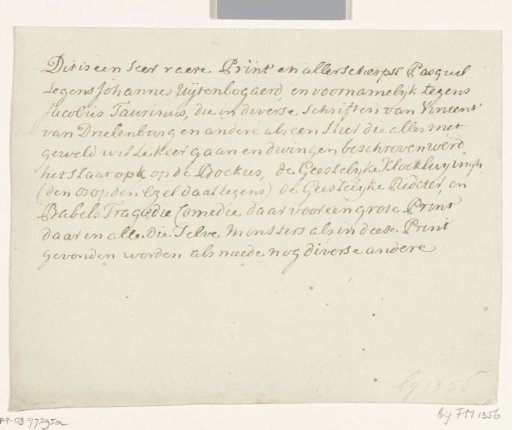 Dit is een seer raere Print en allerscherpst Pasquil
tegens Johannes Uijtenbogaerd en voornamelijk tegens
Jacobus Taurinus, die in diverse schriften van Vincent
van Drielenburg en andere als een Stier die alles met
geweld wil te keer gaan en dwingen beschreven werd.
het slaat op de Boekies, de Geestelijke Klockluijingh
(den os op den Ezel daar tegens) de Geestelijke en
Babels Tragedie Comedie, daar voor een grote Print
daar in alle die selve monsters als in deese Print
gevonden worden als meede nog diverse andere
by 1356
RP-OB-77295a
bij FM 1356